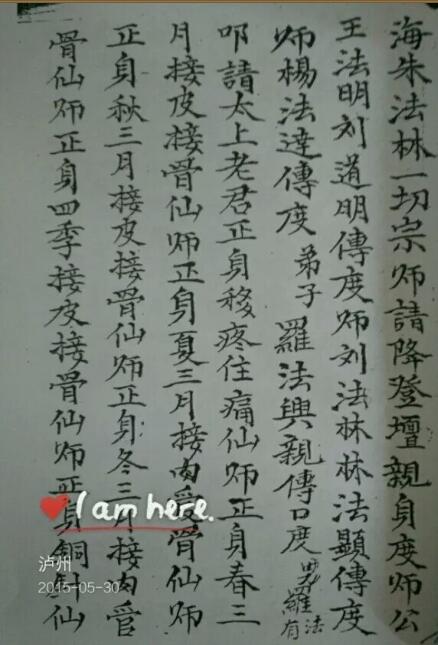 海朱法林一切宗师請降登壇親身度师公
王法明刘道明傳度师刘法林林法顯傳度
师楊法達傳度 弟子 羅法興親傳口度 羅有法
叩請太上老君正身移疼住痛仙师正身春三
月接皮接骨仙师正身夏三月接肉骨仙师
正身秋三月接皮接骨仙师正身冬三月接肉
骨仙师正身四季接皮接骨仙师正身銅針仙
I am here.
泸州
2015-05-30